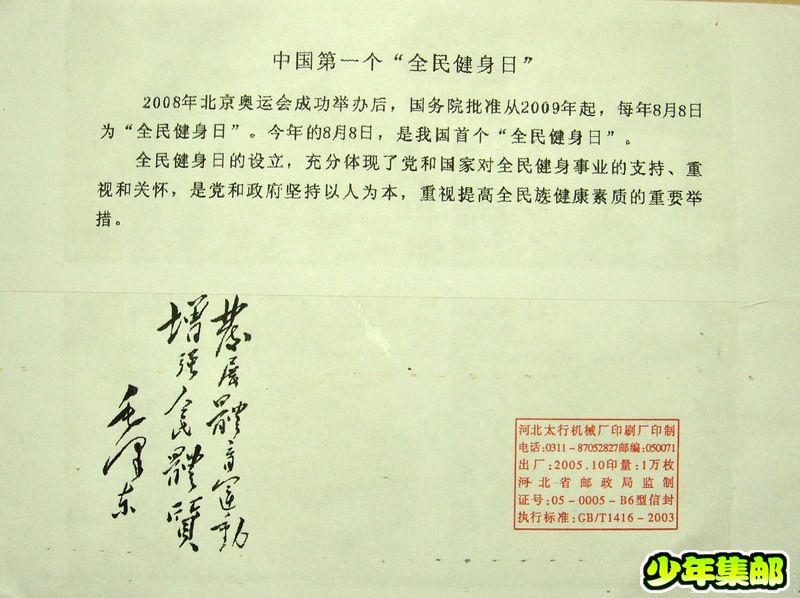 中国第一个“全民健身日”
2008年北京奥运会成功举办后，国务院批准从2009年起，每年8月8日
为“全民健身日”。今年的8月8日，是我国首个“全民健身日”。
全民健身日的设立，充分体现了党和国家对全民健身事业的支持、重
视和关怀，是党和政府坚持以人为本，重视提高全民族健康素质的重要举
措。
發展體育運動
增强人民體質
毛泽东
河北太行机械厂印刷厂印制
电话:0311-87052827邮编:050071
出厂:2005.10印量:1万枚
河北省邮政局监制
证号:05-0005-B6型信封
执行标准:GB/T1416-2003
少年集邮